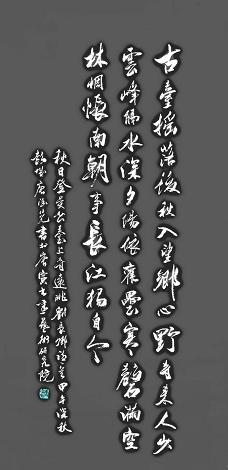 古臺搖落後秋入望鄉心野寺來人少
雲峰隔水深夕陽依舊壘寒磬滿空
林惆悵南朝事長江獨自今
秋日登吳公臺上寺遠眺劉長卿詩甲午深秋
彭城唐書於書畫藝術研究院